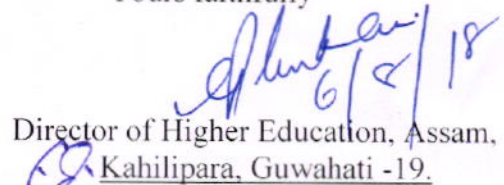 6/8/18
Director of Higher Education, Assam,
Kahilipara, Guwahati -19.